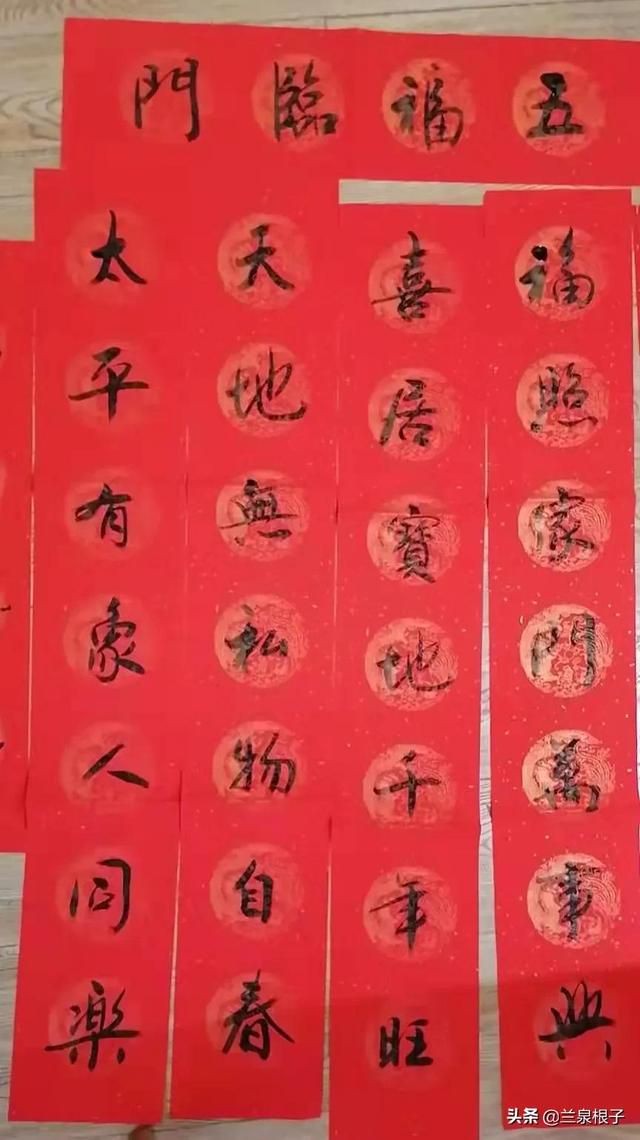 五福臨門
福照家門萬事興
喜居寶地千年旺
天地無私物自春
太平有象人同樂
头条 @兰泉根子